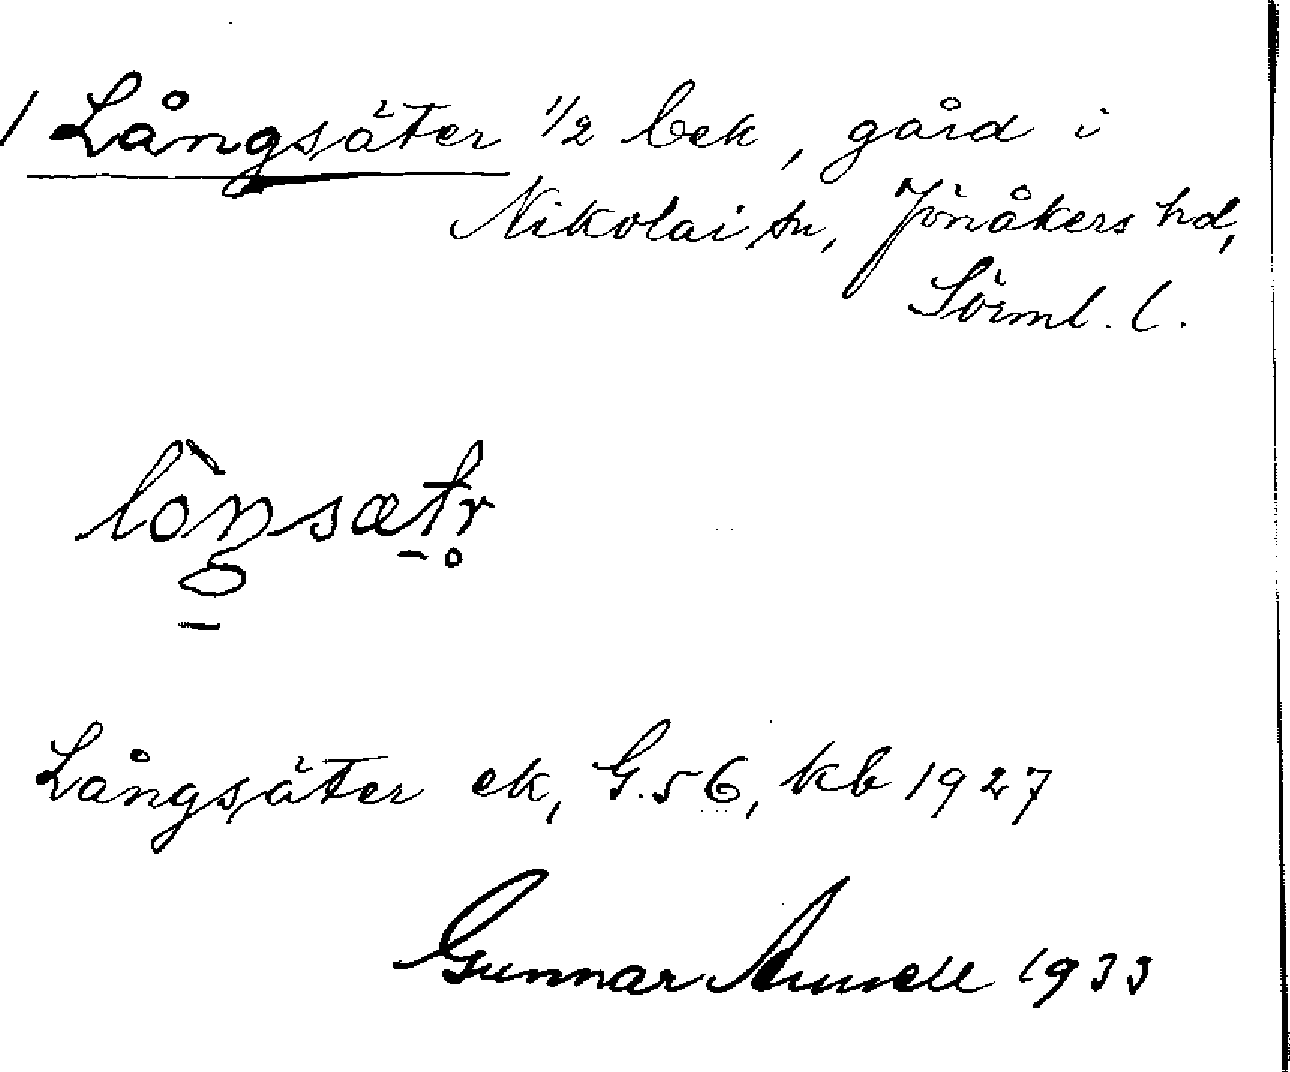 / Långsäter 1/2 bek, gård i
Nikolai sn, Jönåkers hd,
Sörml. l.
Långsäter ek, G.56, kb 1927
Gunnar 1933